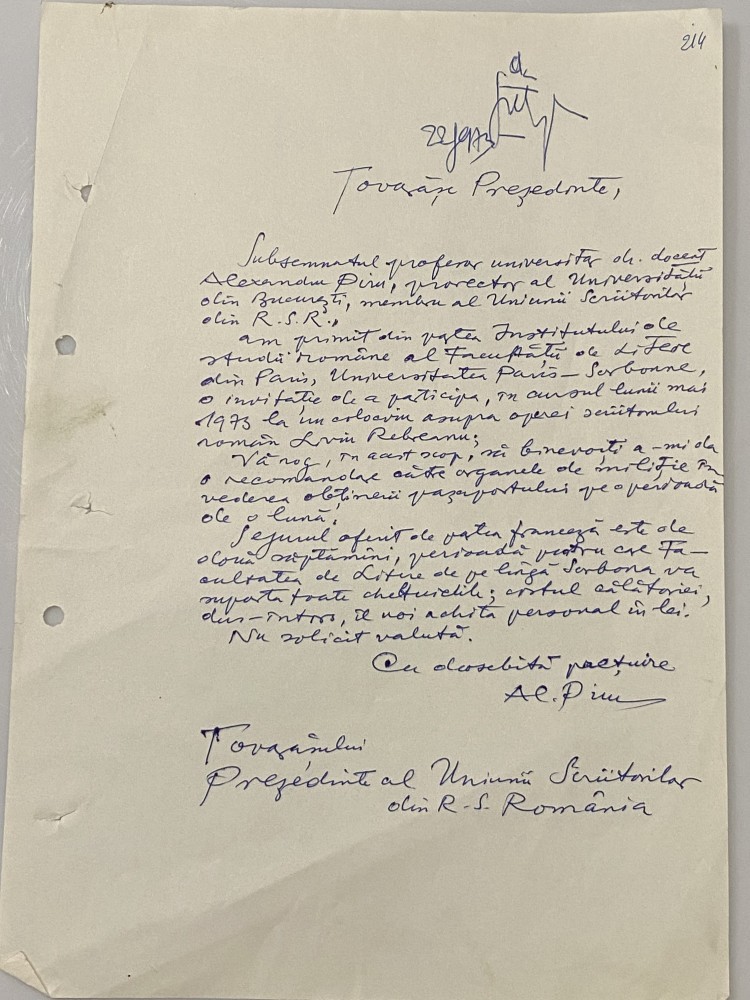 214
da
Tovarășe Președinte,
Subsemnatul profesor universitar dr. docent
Alexandru Piru, prorector al Universității
din București, membru al Uniunii Scriitorilor
din R.S.R.,
am primit din partea Institutului de
studii române al Facultății de Litere
din Paris, Universitatea Paris-Sorbonne,
o invitație de a participa, în cursul lunii mai
1973 la un colocviu asupra operei scriitorului
român Liviu Rebreanu;
Vă rog, în acest scop, să binevoiți a-mi da
o recomandare către organele de miliție în
vederea obținerii pașaportului pe o perioadă
de o lună.
Sejurul oferit de partea franceză este de
două săptămîni, perioadă pentru care Fa-
cultatea de Litere de pe lîngă Sorbona va
suporta toate cheltuielile; costul călătoriei,
dus-întors, îl voi achita personal în lei.
Nu solicit valută.
Cu deosebită prețuire
Al. Piru
Tovarășului
Președinte al Uniunii Scriitorilor
din R.S. România